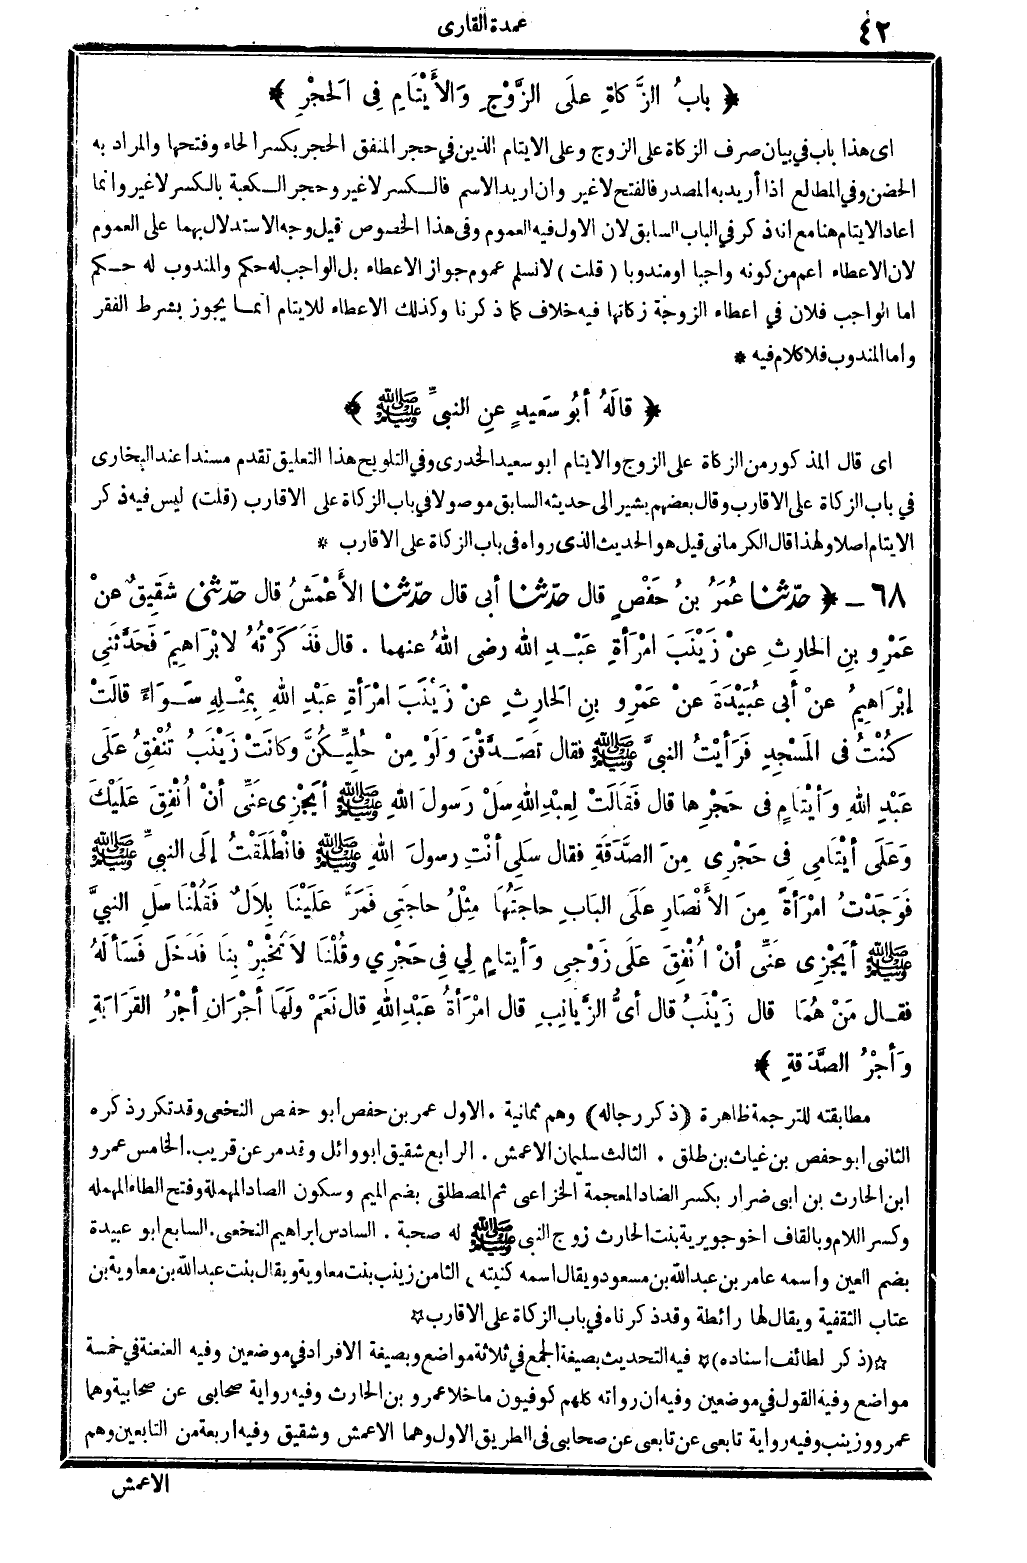 ٤٢
عمدة القارى
﴿ بابُ الزَّكاةِ علَى الزَّوْجِ وَالأَيْتَامِ فِى الحَجْرِ ﴾
اى هذا باب في بيان صرف الزكاة على الزوج وعلى الايتام الذين في حجر المنفق الحجر بكسر الحاء وفتحها والمراد به
الحضن وفي المطالع اذا أريد به المصدر فالفتح لا غير وان اريد الاسم فالكسر لا غير وحجر الكعبة بالكسر لا غير وانما
اعاد الايتام هنا مع انه ذكر في الباب السابق لان الاول فيه العموم وفى هذا الخصوص قيل وجه الاستدلال بهما على العموم
لان الاعطاء اعم من كونه واجبا او مندوبا ( قلت ) لا نسلم عموم جواز الاعطاء بل الواجب له حكم والمندوب له حكم
اما الواجب فلان في اعطاء الزوجة زكاتها فيه خلاف كما ذكرنا وكذلك الاعطاء للايتام انما يجوز بشرط الفقر
واما المندوب فلا كلام فيه *
﴿ قالَهُ أبُو سَعيدٍ عنِ النبىِّ ﷺ ﴾
اى قال المذكور من الزكاة على الزوج والايتام ابو سعيد الخدرى وفي التلويح هذا التعليق تقدم مسندا عند البخارى
في باب الزكاة على الاقارب وقال بعضهم يشير الى حديثه السابق موصولا في باب الزكاة على الاقارب (قلت) ليس فيه ذكر
الايتام اصلا ولهذا قال الكرمانى قيل هو الحديث الذى رواه فى باب الزكاة على الاقارب *
٦٨ ـ ﴿ حدّثنا عُمَرُ بنُ حَفْصٍ قال حدّثنا أبى قال حدّثنا الأَعْمَشُ قال حدّثنى شَقِيقٌ عنْ
عَمْرِو بنِ الحارِثِ عنْ زَيْنَبَ امْرَأةِ عَبْدِ اللهِ رضى اللهُ عنهما . قال فَذَكَرْتُهُ لابْرَاهِيمَ فَحَدَّثَنِى
إبْرَاهِيمُ عنْ أبى عُبَيْدَةَ عنْ عَمْرِو بنِ الحَارِثِ عنْ زَيْنَبَ امْرَأةِ عَبْدِ اللهِ بِمِثْلِهِ سَوَاءً قالَتْ
كُنْتُ فى المَسْجِدِ فَرَأيْتُ النبىَّ ﷺ فقال تَصَدَّقْنَ وَلَوْ مِنْ حُلِيِّكُنَّ وكانَتْ زَيْنَبُ تُنْفِقُ عَلَى
عَبْدِ اللهِ وَأيْتَامٍ فى حَجْرِها قال فَقَالَتْ لِعبْدِ اللهِ سَلْ رَسولَ اللهِ ﷺ أيَجْزِى عنِّى أنْ اُنْفِقَ عَلَيْكَ
وَعَلَى أيْتَامِى فِى حَجْرِى مِنَ الصَّدَقَةِ فقال سَلِى أنْتِ رسولَ اللهِ ﷺ فانْطَلَقْتُ إلَى النبىِّ ﷺ
فَوَجَدْتُ امْرَأةً مِنَ الأَنْصَارِ عَلَى البَابِ حاجَتُهَا مِثْلُ حاجَتِى فَمَرَّ عَلَيْنَا بِلاَلٌ فَقُلْنَا سَلِ النبىَّ
ﷺ أيَجْزِى عَنِّى أنْ اُنْفِقَ عَلَى زَوْجِى وَأيتامٍ لِي فِى حَجْرِي وقُلْنَا لاَ تُخْبِرْ بِنَا فَدَخَلَ فَسَألَهُ
فقال مَنْ هُمَا قال زَيْنَبُ قال أىُّ الزَّيانِبِ قال امْرَأةُ عَبْدِ اللهِ قال نَعَمْ ولَهَا أجْرَانِ أجْرُ القَرَابَةِ
وَأجْرُ الصَّدَقةِ ﴾
مطابقته للترجمة ظاهرة (ذكر رجاله) وهم ثمانية . الاول عمر بن حفص ابو حفص النخعى وقد تكرر ذكره
الثانى ابو حفص بن غياث بن طلق . الثالث سليمان الاعمش . الرابع شقيق ابو وائل وقد مر عن قريب . الخامس عمرو
ابن الحارث بن ابى ضرار بكسر الضاد المعجمة الخزاعى ثم المصطلقى بضم الميم وسكون الصاد المهملة وفتح الطاء المهمله
وكسر اللام وبالقاف اخو جويرية بنت الحارث زوج النبى ﷺ له صحبة . السادس ابراهيم النخعى . السابع ابو عبيدة
بضم العين واسمه عامر بن عبد الله بن مسعود ويقال اسمه كنيته ، الثامن زينب بنت معاوية ويقال بنت عبد الله بن معاوية بن
عتاب الثقفية ويقال لها رائطة وقد ذكرناه في باب الزكاة على الاقارب ☆
☆(ذكر لطائف اسناده)☆ فيه التحديث بصيغة الجمع في ثلاثة مواضع وبصيغة الافراد في موضعين وفيه العنعنة في خمسة
مواضع وفيه القول في موضعين وفيه ان رواته كلهم كوفيون ما خلا عمرو بن الحارث وفيه رواية صحابى عن صحابية وهما
عمرو وزينب وفيه رواية تابعى عن تابعى عن صحابى فى الطريق الاول وهما الاعمش وشقيق وفيه اربعة من التابعين وهم
الاعمش